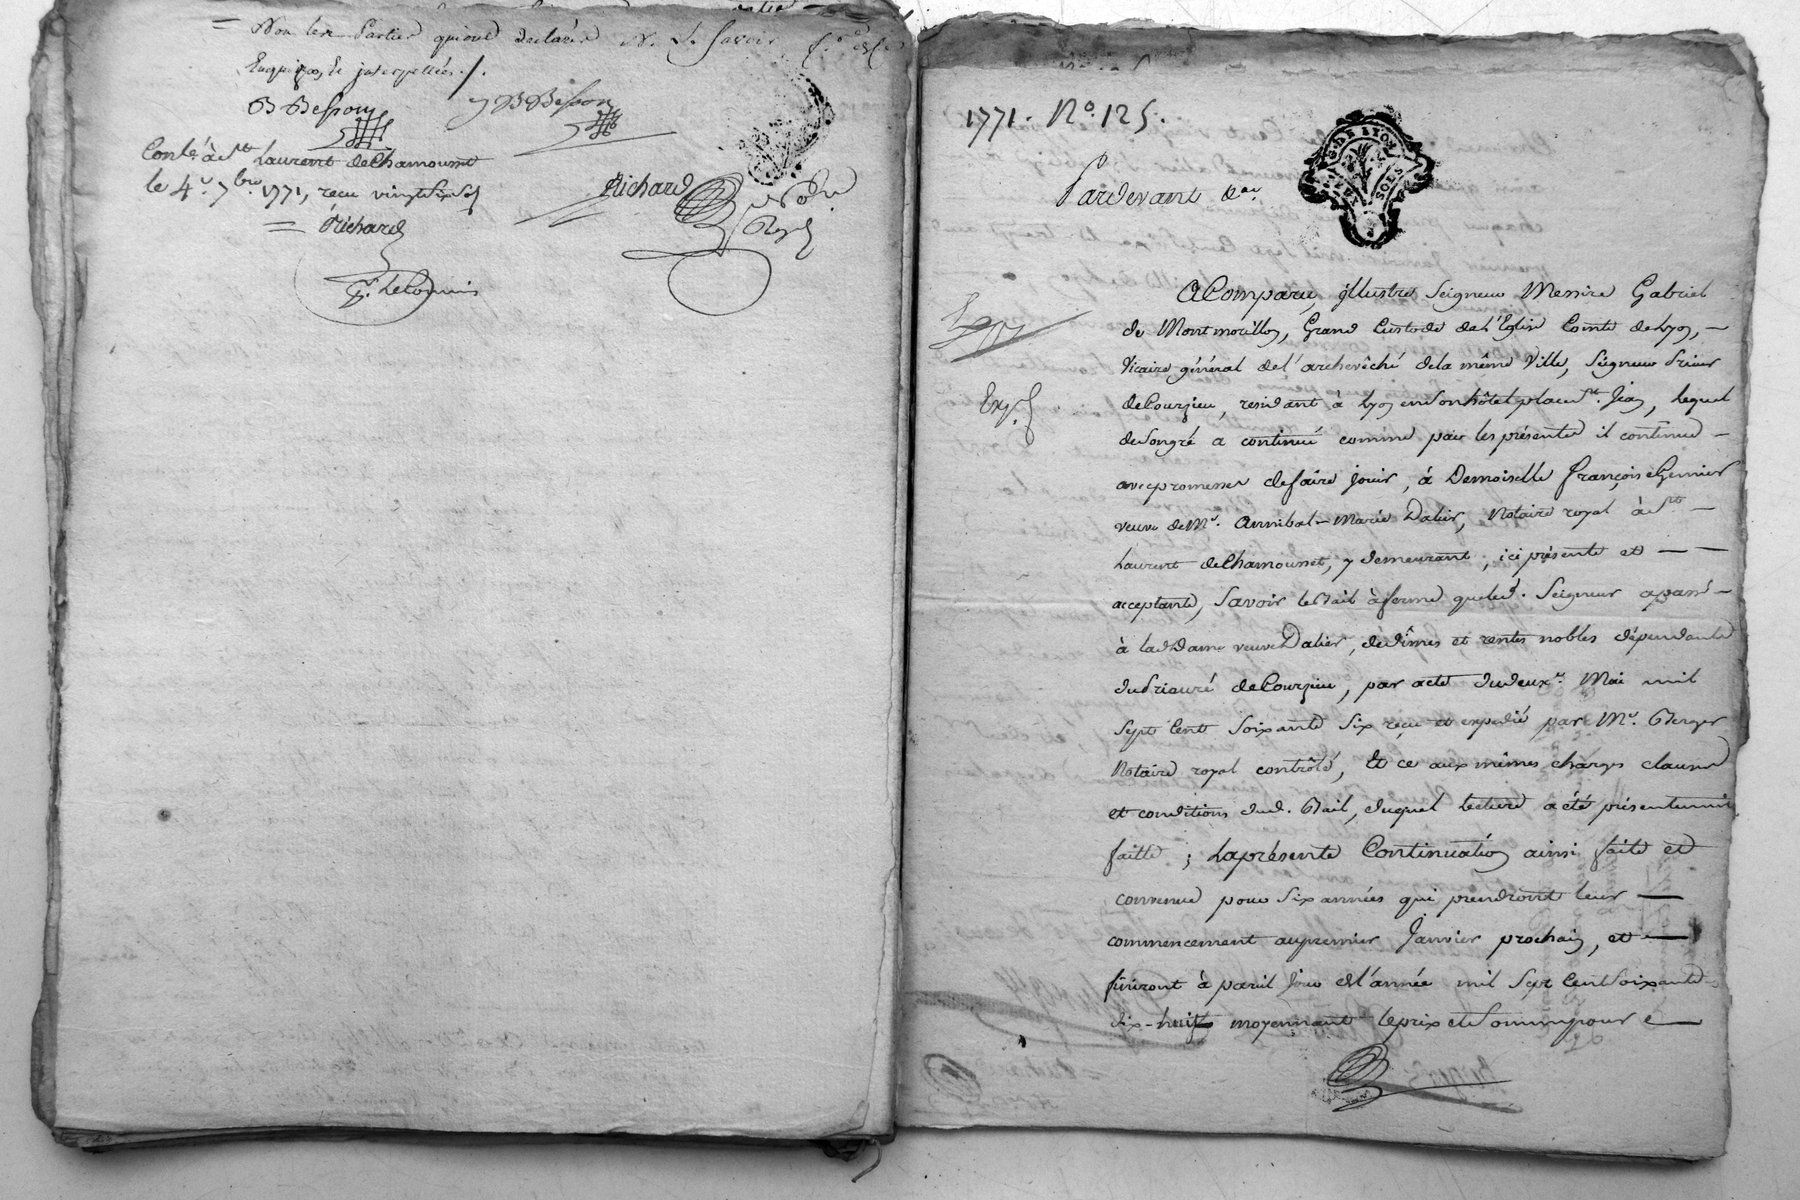 = Non les Parties qui ont declaré N. Le Savoir
Enquises, et interpellées ./.
B Besson B Besson
Contlé à St Laurent de Chamousset
le 4e. 7bre 1771, reçu vingt six s
Richard
= Richard
1771. No. 125.
G. DE LYON
SOLS
Pardevant &a.
A Comparu, illustre Seigneur Messire Gabriel
de Montmorillon, Grand Custode de L'Eglise Comte de Lyon, —
Vicaire général de l'archevêché de la même Ville, Seigneur Prieur
de Courzieu, résidant à Lyon en son hôtel place St. Jean, Lequel
de Son gré a continué comme par les présentes il continue —
avec promesse de faire jouir, à Demoiselle françoise Gennier
veuve de Me. Annibal-Marie Dalier, Notaire royal à St —
Laurent de Chamousset, y demeurant, ici présente et — —
acceptante, Savoir le Bail à ferme que led. Seigneur a passé —
à lad Dame veuve Dalier, de dîmes et rentes nobles dépendantes
du Prieuré de Courzieu, par acte du deux. Mai mil
Sept Cent Soixante Six reçu et expedié par Me. Berger
Notaire royal contrôlé, Et ce aux mêmes charges clauses
et conditions dud. Bail, duquel lecture a été présentement
faitte ; La présente Continuation ainsi faite et
convenue pour Six années qui prendront leur —
commencement au premier Janvier prochain, et —
finiront à pareil Jour de l'année mil Sept Cent Soixante
dix-huit moyennant le prix et Somme pour —
Exp.